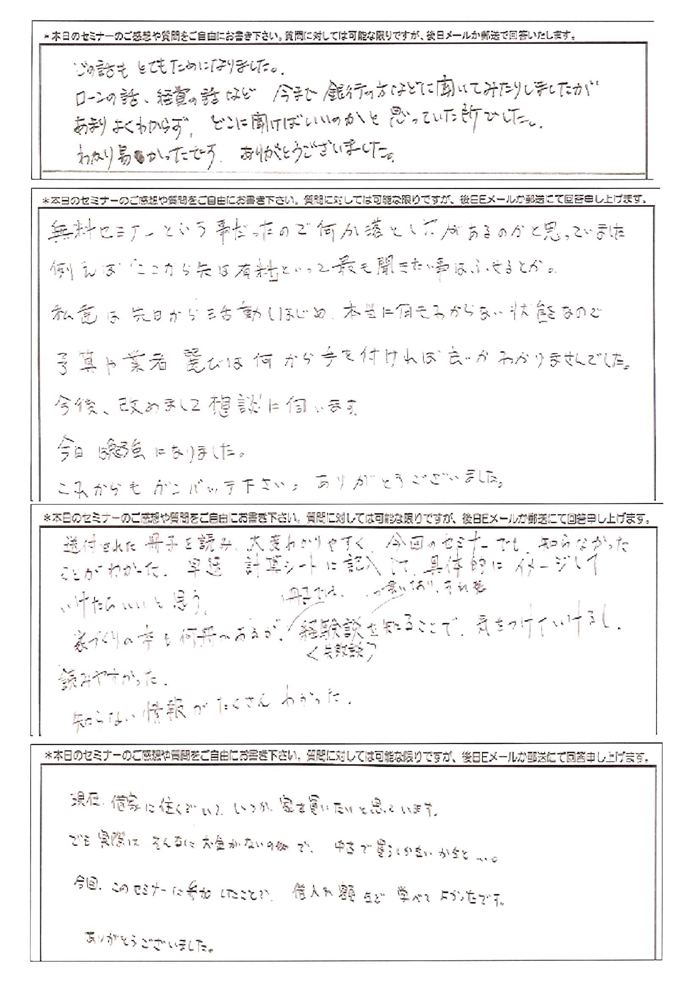 *本日のセミナーのご感想や質問をご自由にお書き下さい。質問に対しては可能な限りですが、後日メールか郵送で回答いたします。
どの話も とてもためになりました。
ローンの話、経費の話など 今まで 銀行の方などに聞いてみたりしましたが
あまりよくわからず、どこに聞けばいいのかと 思っていた所でした。
わかり易かったです。ありがとうございました。
*本日のセミナーのご感想や質問をご自由にお書き下さい。質問に対しては可能な限りですが、後日Eメールか郵送にて回答申し上げます。
無料セミナーという事だったので何か落とし穴があるのかと思っていました
例えば「ここから先は有料」といって最も聞きたい事はふせるとか。
私達は先日から活動しはじめ、本当に何もわからない状態なので
予算や業者 選びは何から手を付ければ良いかわかりませんでした。
今後、改めまして相談に伺います。
今日は勉強になりました。
これからもガンバッテ下さい。ありがとうございました。
*本日のセミナーのご感想や質問をご自由にお書き下さい。質問に対しては可能な限りですが、後日Eメールか郵送にて回答申し上げます。
送付された冊子を読み、大変わかりやすく、今回のセミナーでも、知らなかった
ことがわかった。早速 計算シートに記入して、具体的にイメージして
いけたらいいと思う。
冊子では、
家づくりの本も何冊かあるが、経験談を知ることで、気をつけていけるし、
<失敗談>
読みやすかった。
知らない情報がたくさんわかった。
*本日のセミナーのご感想や質問をご自由にお書き下さい。質問に対しては可能な限りですが、後日Eメールか郵送にて回答申し上げます。
現在、借家に住んでいて、いつか、家を買いたいと思っています。
でも実際に そんなに お金がないので、中古で買うしかないかなと…。
今回、このセミナーに参加したことで、借入れ額まで 学べて よかったです。
ありがとうございました。